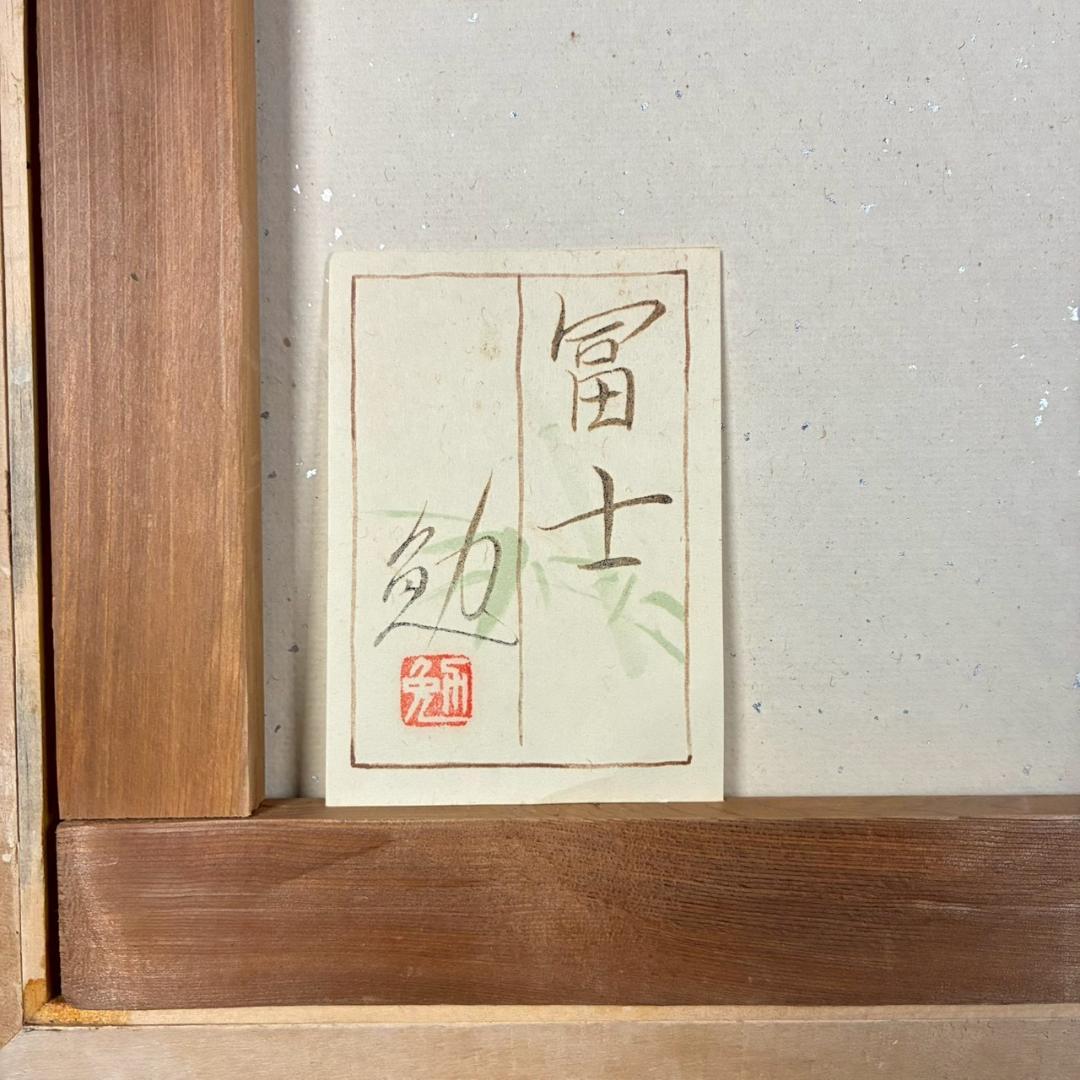 冨士
勉
勉